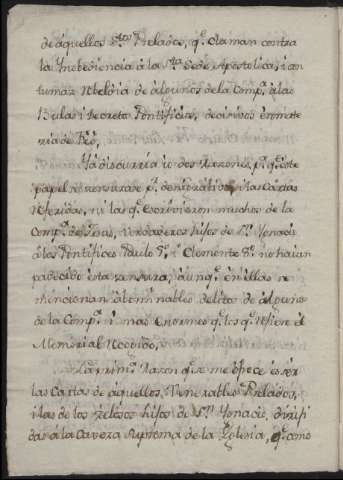 de aquellos S.tos Prelados, q.e claman contra
la Inobediencia à la S.ta Sede Apostolica, i con
tumaz Rebeldia de algunos de la Comp.a à las
Bulas i Decretos Pontificios, decisivos en mate
ria de Feè,
Ya discurria io dos razones, p.r q.e este
papel censurado p.r denigrativo, i las Cartas
referidas, ni las q.e escrivieron muchos de la
Comp.a de Jesus, verdaderos hijos de S.n Ygnacio
à los Pontifices Paulo 5.o i Clemente 8.o no haian
padecido esta censura, aunq.e en ellas se
mencionan abominables delitos de algunos
de la Comp.a i mas enormes q.e los q.e refiere el
Memorial recogido,
La prim.a razon q.e se me ofrece es ser
las Cartas de aquellos Venerables Prelados,
i las de los zelosos hijos de S.n Ygnacio, dirigi
das a la Caveza suprema de la Yglesia, q.e como